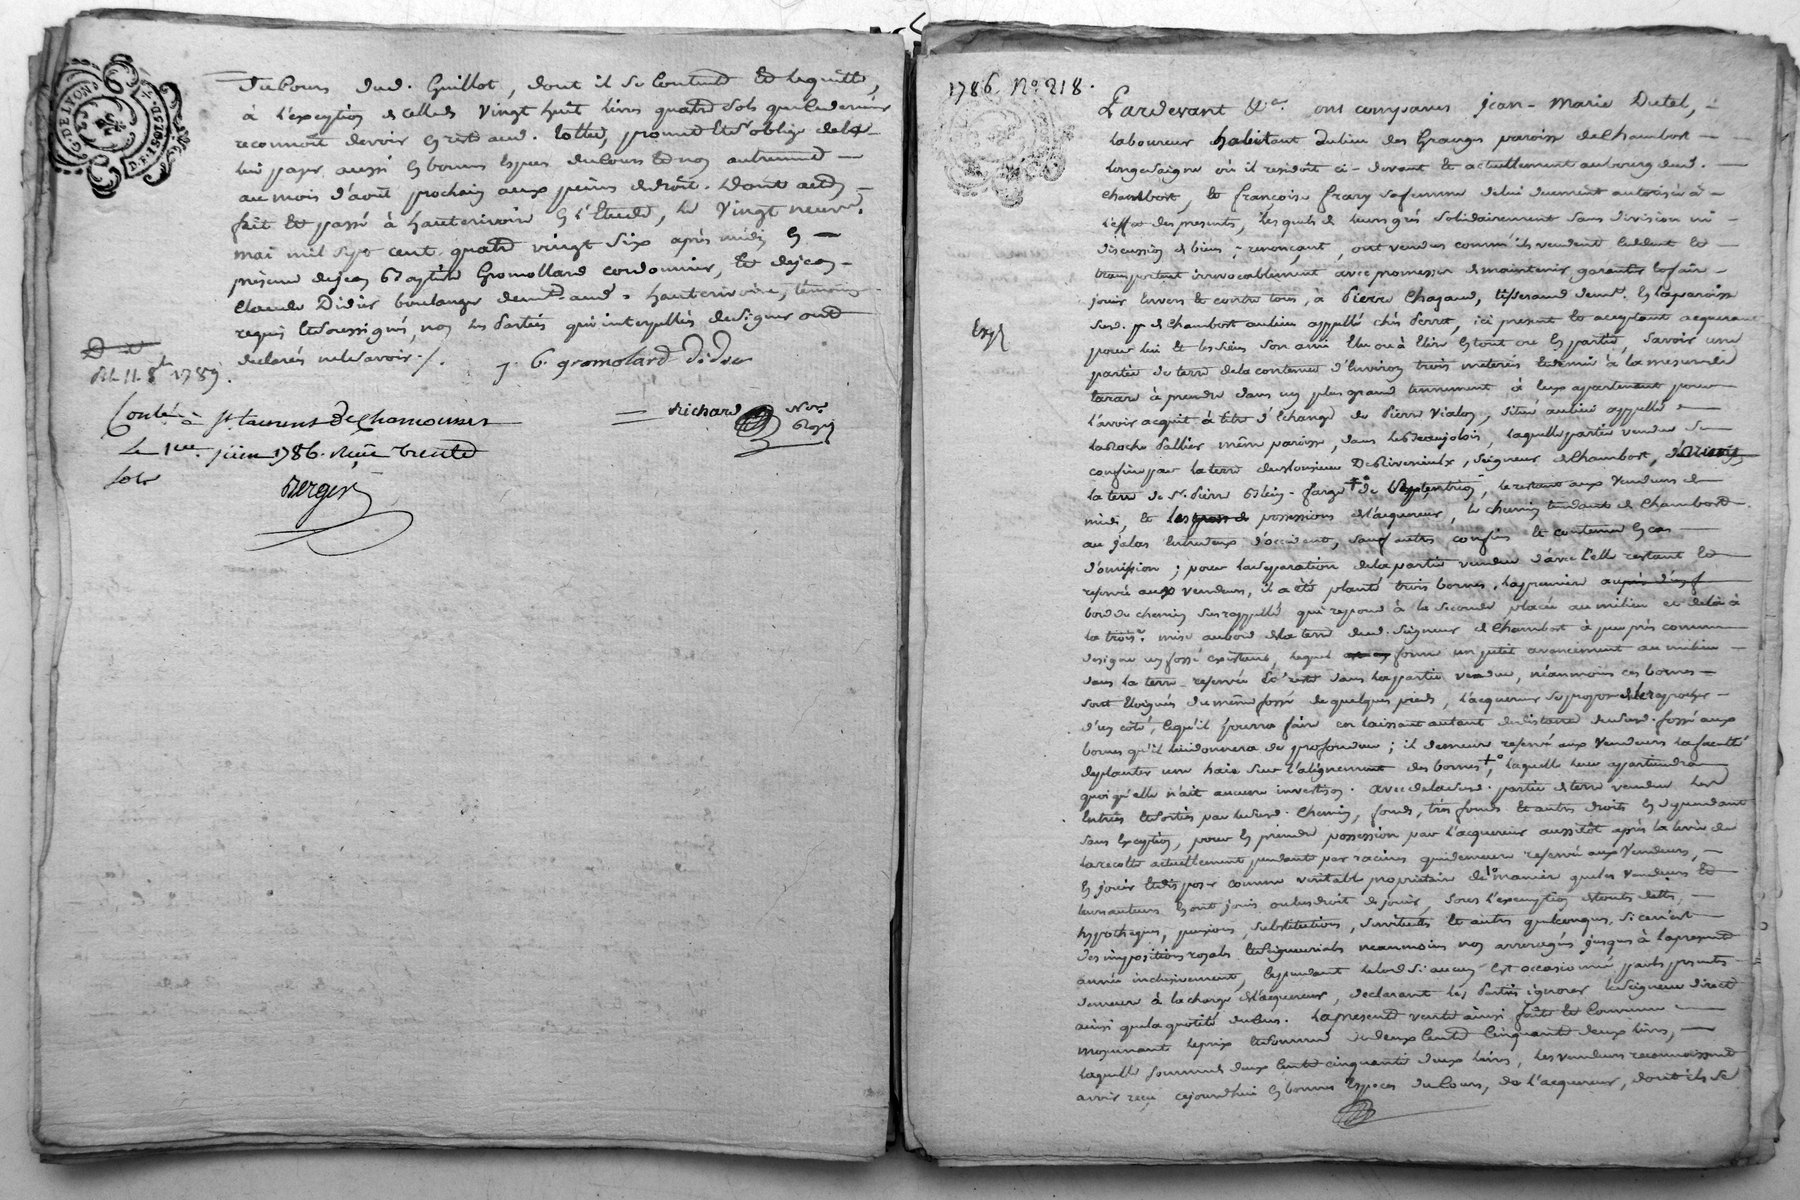 G. DE LYON
du Cours dud. Guillot, dont il se Contente et le quitte,
à l'exception de celle de vingt huit livres quatre sols que ce dernier
reconnoit devoir de reste aud. promet et s'oblige de la
lui payer aussi en bonnes Espèces du Cours et non autrement
au mois d'août prochain aux peines de droit. Dont acte
fait et passé à hauterivoire En l'Etude, le vingt neuve.
mai mil sept cent quatre vingt six après midy En
présence de jean Baptiste Gromollard cordonnier, et de jean
Claude Didier boulanger demt aud. hauterivoire, témoins
requis et soussignés, non les parties qui interpellées de signer ont
declarés ne le savoir ./.
j. B. gromolard Didier
11. 8bre 1789.
Conlé à St Laurent de Chamousset
Le 1er juin 1786. Reçu trente
sols
Berger
Richard Nore
Royal
1786 N° 218.
Pardevant &a. ont comparus jean-Marie Dutel,
laboureur habitant du lieu des Granges paroisse de Chambost
Longesaigne où il residoit ci-devant et actuellement au bourg dud.
Chambost, et françoise frary sa femme de lui duement autorisée à
l'effet des presentes, lesquels de leurs grés solidairement sans division ni
discussion de biens y renonçant, ont vendus comme ils vendent cedent et
transportent irrevocablement avec promesse de maintenir garantir et faire
jouir Envers et contre tous, à Pierre Chagaud, tisserand demt. En la paroisse
sud. de Chambost au lieu appellé chés Perret, ici present et acceptant acquereur
pour lui et les siens son ami Elu ou à Elire En tout ou En partie, savoir une
partie de terre de la contenue d'Environ trois meterées et demie à la mesure de
tarare à prendre dans un plus grand tennement à Eux appartenant pour
l'avoir acquit à titre d'Echange de Pierre Vialon, situé au lieu appellé
la Roche Pallier même paroisse, dans le Beaujolois, laquelle partie vendue se
confine par la terre de Monsieur De Riverieulx, Seigneur de Chambost, d'orient
la terre de Sr. Pierre Farge de Septentrion, le restant aux Vendeurs de
midi, et les possessions de l'acquereur, le chemin tendant de Chambost
au jalas Entredeux d'occident, sauf autres confins et contenue En cas
d'omission ; pour la separation de la partie vendue d'avec celle restant et
reservée aux vendeurs, il a été planté trois bornes, la premiere au
bord du chemin susrappellé qui repond à la seconde placée au milieu et de là à
la trois. mise au bord de la terre dud. Seigneur de Chambost à peu près comme
designe un fossé existant, lequel forme un petit avancement au milieu
dans la terre reservée et reste dans la partie vendue, néanmoins ces bornes
sont Eloignés du même fossé de quelques pieds, l'acquereur se propose de le rapprocher
d'un côté, ce qu'il pourra faire en laissant autant de distance dudud. fossé aux
bornes qu'il lui donnera de profondeur ; il demeure reservé aux Vendeurs la faculté
de planter une haie sur l'alignement des bornes, laquelle leur appartiendra
quoiqu'elle n'ait aucune investison. avec de la sud. partie de terre vendue les
Entrées et sorties par led. Chemin, fonds, très fonds et autres droits En dépendant
sans Exception, pour En prendre possession par l'acquereur aussitôt après la levée de
la recolte actuellement pendante par racines qui demeure reservée aux Vendeurs,
En jouir et disposer comme veritable propriétaire de manière que les vendeurs et
leurs auteurs En ont jouis ou eu droit de jouir, sous l'exemption de toutes dettes,
hypotheques, pensions, substitutions, servitudes et autres quelconques, si ce n'est
des impositions royales et seigneuriales néanmoins non arreragés jusques à la presente
année inclusivement, Cependant le lod si aucun est occasionné par les presentes
demeure à la charge de l'acquereur, declarant les Parties ignorer le Seigneur direct
ainsi que la quotité du Cens. la presente vente ainsi faite et Convenue
moyennant le prix et somme de deux Cents Cinquante deux livres,
laquelle somme de deux Cents cinquante deux livres, les vendeurs reconnoissent
avoir reçu cejourdhui En bonnes Espèces du Cours, de l'acquereur, dont ils se